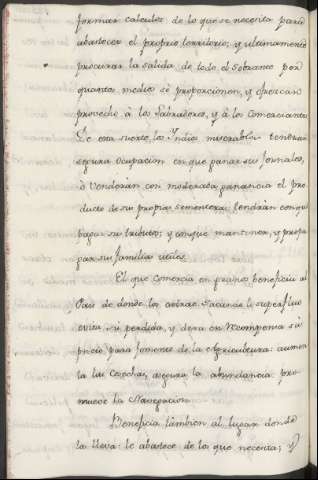 formar calculos de lo que se necesita para
abastecer el proprio territorio, y ultimamente
procurar la salida de todo el sobrante por
quantos medios se proporcionen, y ofrezcan
provecho à los Labradores, y à los Comerciantes
De esta suerte los Indios miserables tendràn
segura ocupacion con que ganar sus Jornales,
ò venderàn con moderada ganancia el pro-
ducto de su propia sementera: tendràn con que
pagar su tributo; y con que mantener, y propa-
gar sus familias utiles.
El que comercia en granos beneficia al
Pais de donde los extrae. Sacando lo superfluo
evita su perdida, y dexa en recompensa su
precio para fomento de la Agricultura: aumen
ta las Cosechas, asegura la abundancia pro-
mueve la Navegacion.
Beneficia tambien al lugar donde
la lleva: le abastece de lo que necesita; y